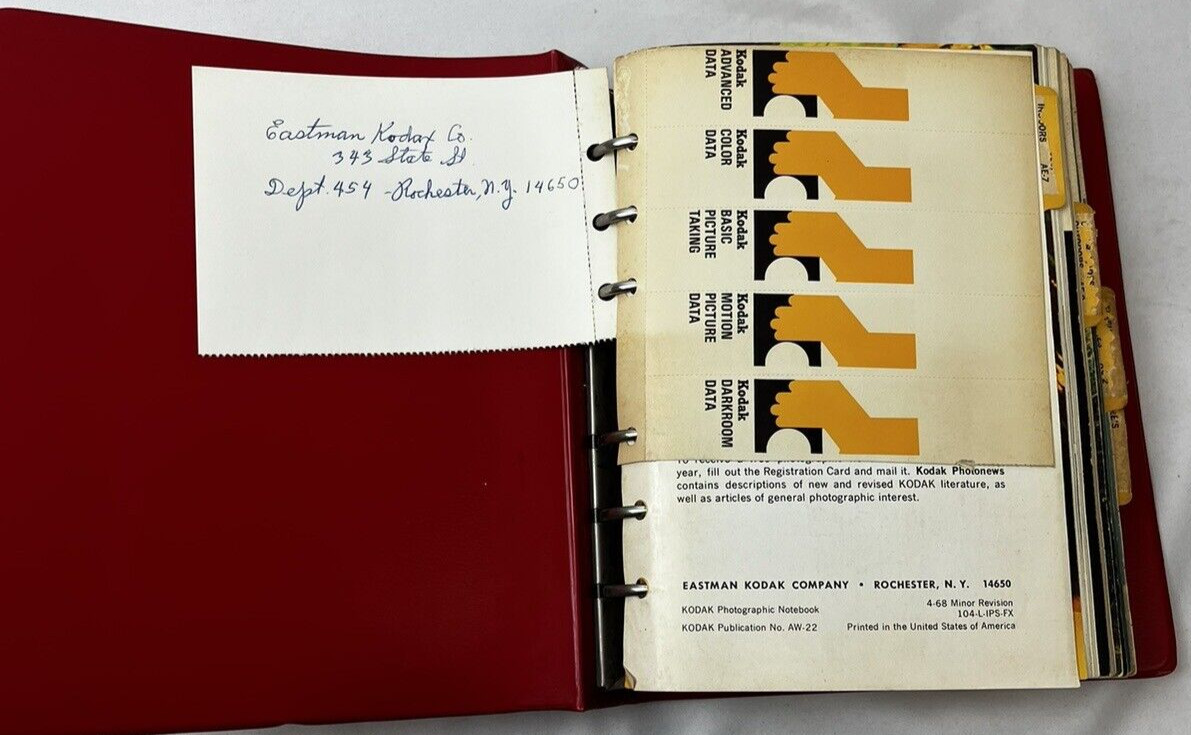 Eastman Kodax Co.
343 State St
Dept. 454 - Rochester, N.Y. 14650
Kodak
ADVANCED
DATA
Kodak
COLOR
DATA
Kodak
BASIC
PICTURE
TAKING
Kodak
MOTION
PICTURE
DATA
Kodak
DARKROOM
DATA
year, fill out the Registration Card and mail it. Kodak Photonews
contains descriptions of new and revised KODAK literature, as
well as articles of general photographic interest.
EASTMAN KODAK COMPANY • ROCHESTER, N. Y. 14650
KODAK Photographic Notebook
4-68 Minor Revision
104-L-IPS-FX
KODAK Publication No. AW-22
Printed in the United States of America
AE-7